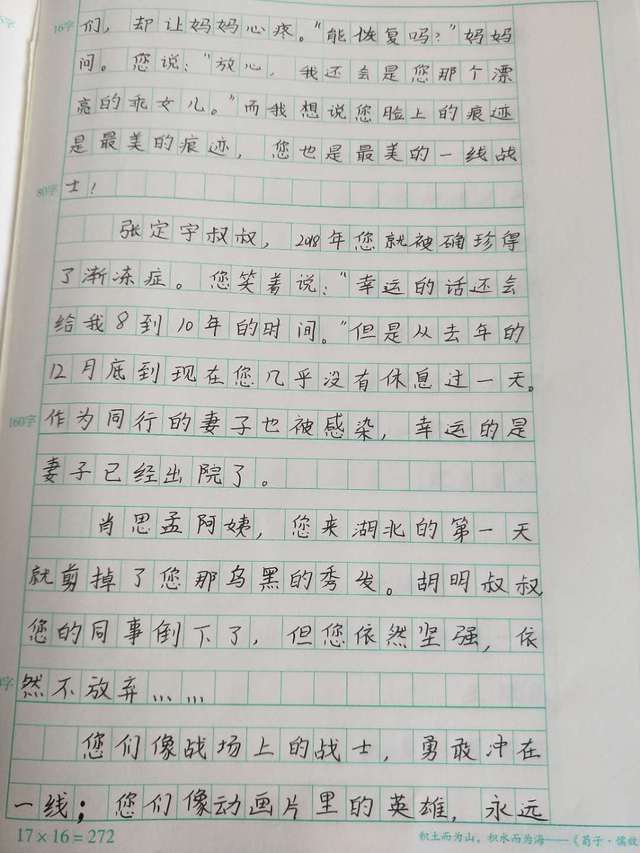 16字
们，却让妈妈心疼。"能恢复吗？"妈妈
问。您说："放心，我还会是您那个漂
亮的乖女儿。"而我想说您脸上的痕迹
是最美的痕迹，您也是最美的一线战
80字
士！
张定宇叔叔，2018年您就被确珍得
了渐冻症。您笑着说："幸运的话还会
给我8到10年的时间。"但是从去年的
12月底到现在您几乎没有休息过一天。
160字
作为同行的妻子也被感染，幸运的是
妻子已经出院了。
肖思孟阿姨，您来湖北的第一天
就剪掉了您那乌黑的秀发。胡明叔叔
您的同事倒下了，但您依然坚强，依
字
然不放弃……
您们像战场上的战士，勇敢冲在
一线；您们像动画片里的英雄，永远
17×16=272
积土而为山，积水而为海——《荀子·儒效